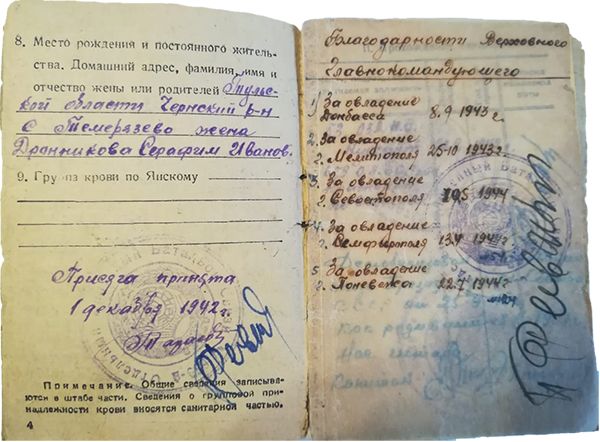 8. Место рождения и постоянного житель-
ства. Домашний адрес, фамилия, имя и
отчество жены или родителей Тульс-
кой области Чернский р-н
с Темерязево жена
Дронникова Серафим Иванов.
9. Группа крови по Янскому
Присяга принята
1 декабря 1942 г.
Примечание. Общие сведения записыва-
ются в штабе части. Сведения о групповой при-
надлежности крови вносятся санитарной частью.
4
Благодарности Верховного
Главнокомандующего
1) За овладение
Донбасса 8.9 1943 г
2. За овладение
г. Мелитополя 25-10 1943 г.
3. За овладение
г. Севостополя 10.5 1944
4. За овладение
г. Семферополя 13.4 1944 г.
5 За овладение
г. Поневежа 22.7 1944 г